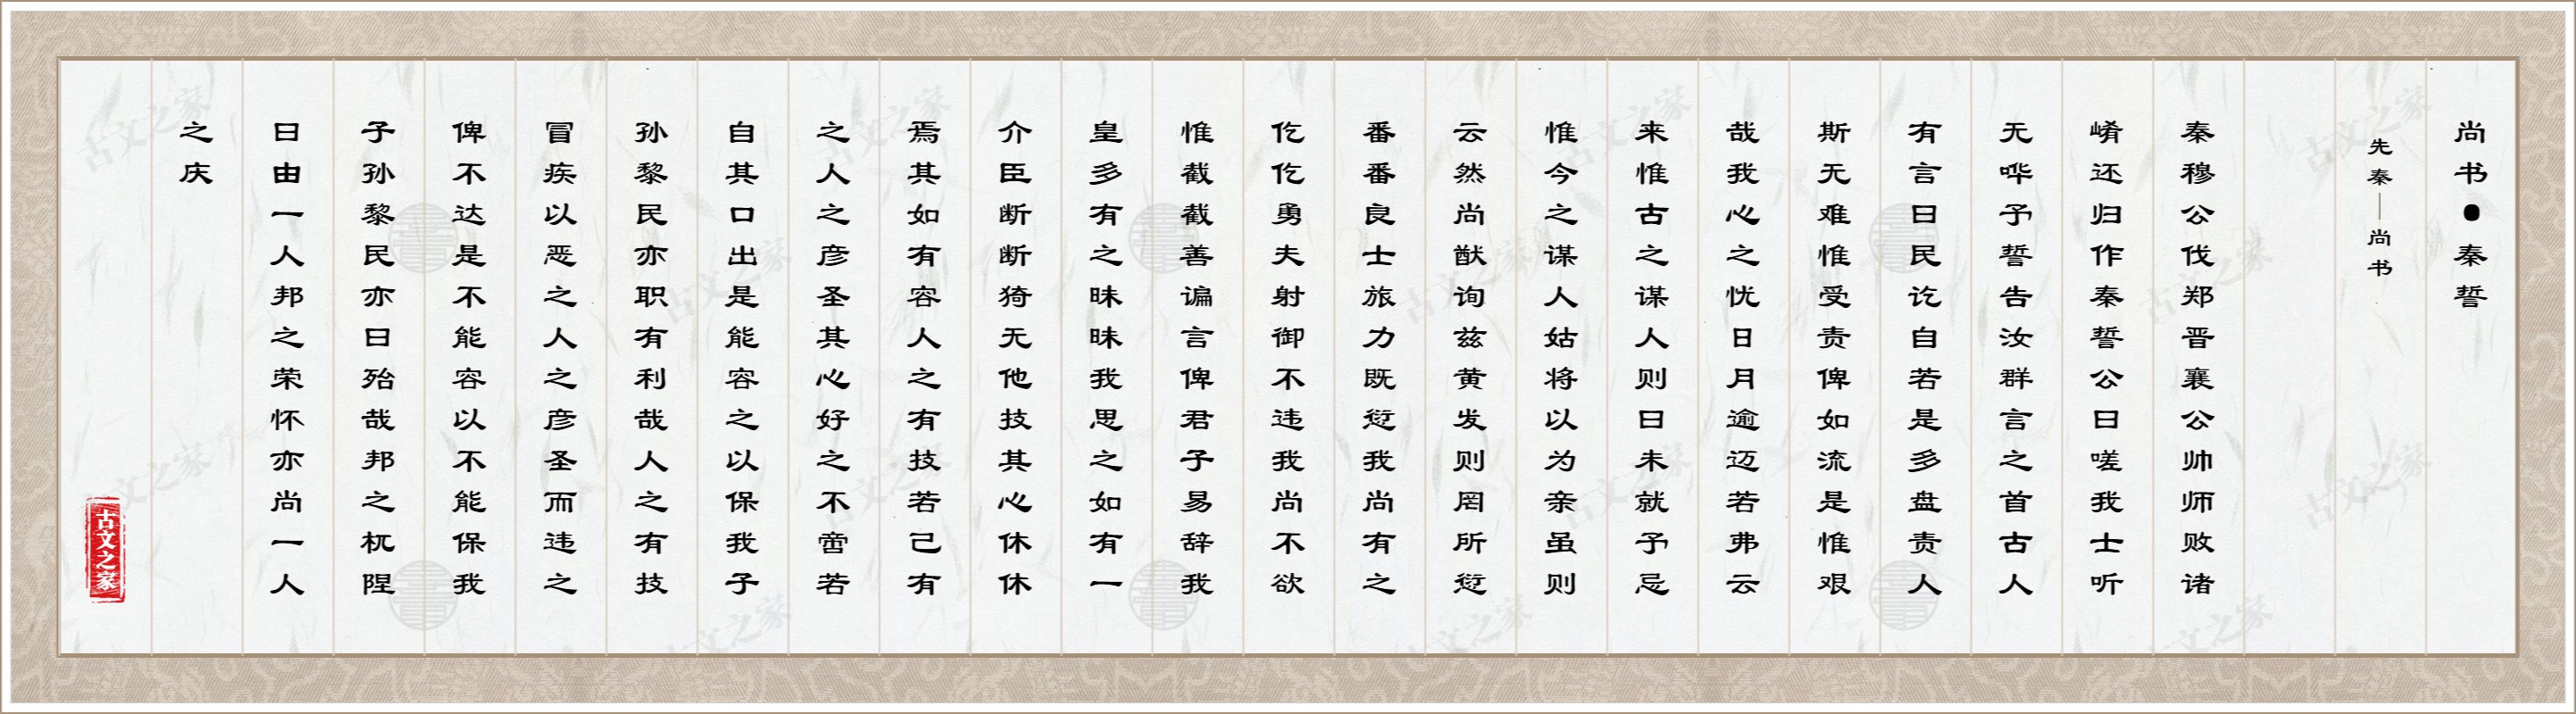 尚书●秦誓
先秦—尚书
秦穆公伐郑晋襄公帅师败诸
崤还归作秦誓公曰嗟我士听
无哗予誓告汝群言之首古人
有言曰民讫自若是多盘责人
斯无难惟受责俾如流是惟艰
哉我心之忧日月逾迈若弗云
来惟古之谋人则曰未就予忌
惟今之谋人姑将以为亲虽则
云然尚猷询兹黄发则罔所愆
番番良士旅力既愆我尚有之
仡仡勇夫射御不违我尚不欲
惟截截善谝言俾君子易辞我
皇多有之昧昧我思之如有一
介臣断断猗无他技其心休休
焉其如有容人之有技若己有
之人之彦圣其心好之不啻若
自其口出是能容之以保我子
孙黎民亦职有利哉人之有技
冒疾以恶之人之彦圣而违之
俾不达是不能容以不能保我
子孙黎民亦曰殆哉邦之杌陧
曰由一人邦之荣怀亦尚一人
之庆
古文之家